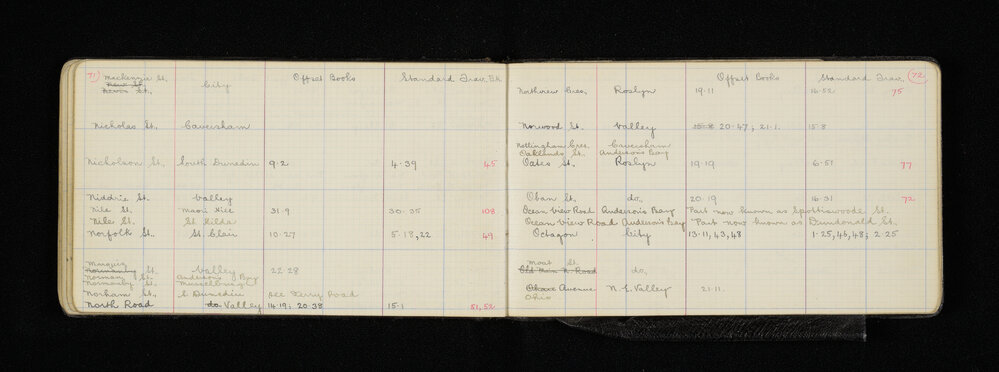 71 Mackenzie St. Offset Books Standard Trav. Bk.
New St. City
Nicholas St. Caversham
Nicholson St. South Dunedin 9.2 4.39 45
Niddrie St. Valley
Nile St. Maori Hill 31.9 30.35 108
Nile St. St Kilda
Norfolk St. St. Clair 10.27 5.18,22 49
Normanby St. Valley 22.28
Normanby St. Anderson's Bay
Normanby St. Musselburgh
Norham St. S. Dunedin see Terry Road
North Road do Valley 14.19; 20.38 15.1 51,52
Offset Books Standard Trav. 72
Northview Cres. Roslyn 19.11 16.52 75
Norwood St. Valley 15.8 20.47; 21.1. 15.8
Nottingham Cres. Caversham
Oaklands St. Anderson's Bay
Oates St. Roslyn 19.19 6.51 77
Oban St. do. 20.19 16.31 72
Ocean View Road Anderson's Bay Part now known as Spottiswoode St.
Ocean View Road Anderson's Bay Part now known as Dundonald St.
Octagon City 13.11,43,48 1.25,46,48; 2.25
Moat St.
Old Main N. Road do.
Avenue N.E. Valley 21.11.
Ohio